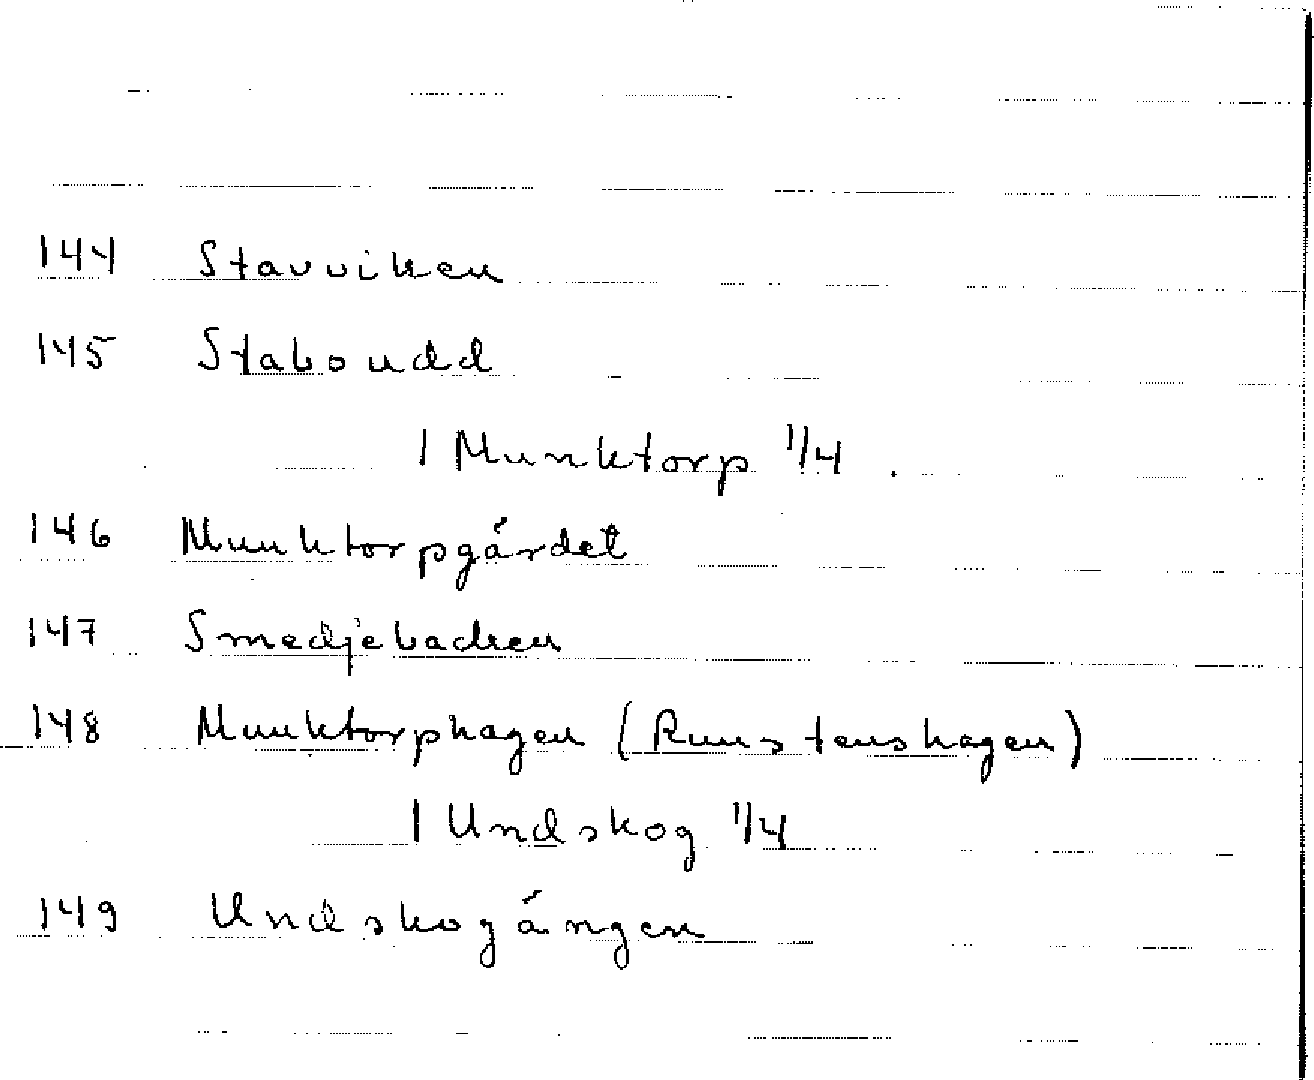 144 Stavviken
145 Staboudd
1 Munktorp 1/4
146 Munktorpgärdet
147 Smedjebacken
148 Munktorphagen (Runstenshagen)
1 Undskog 1/4
149 Undskogängen